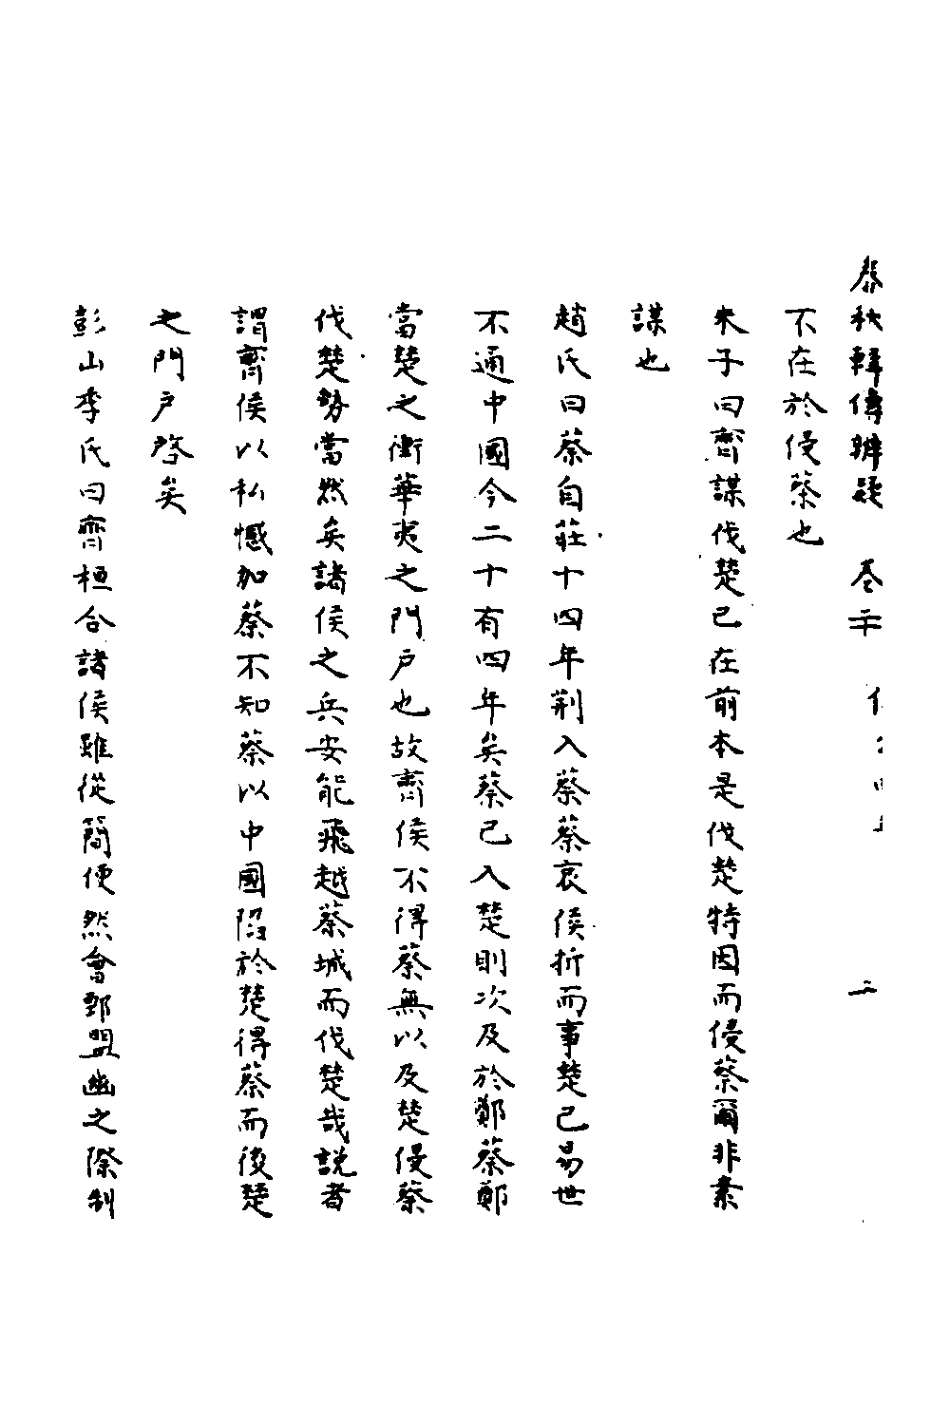 春秋輯傳辨疑　卷二十　二
不在於侵蔡也
朱子曰齊謀伐楚已在前本是伐楚特因而侵蔡爾非素
謀也
趙氏曰蔡自莊十四年荆入蔡蔡哀侯折而事楚已易世
不通中國今二十有四年矣蔡已入楚則次及於鄭蔡鄭
當楚之衝華夷之門户也故齊侯不得蔡無以及楚侵蔡
伐楚勢當然矣諸侯之兵安能飛越蔡城而伐楚哉説者
謂齊侯以私憾加蔡不知蔡以中國陷於楚得蔡而後楚
之門户啓矣
彭山季氏曰齊桓合諸侯雖從簡便然會鄄盟幽之際制